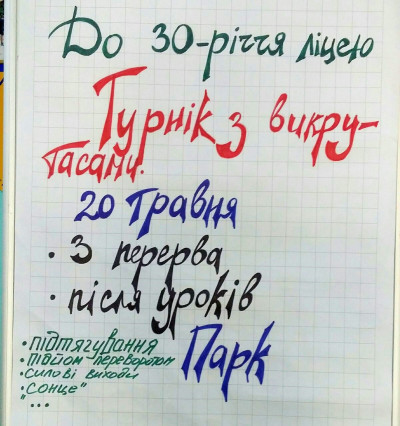 До 30-річчя ліцею
Турнік з викру-
тасами.
20 травня
· 3 перерва
· після уроків
Парк
· підтягування
· підйом-переворотом
· силові виходи
· "сонце"
...